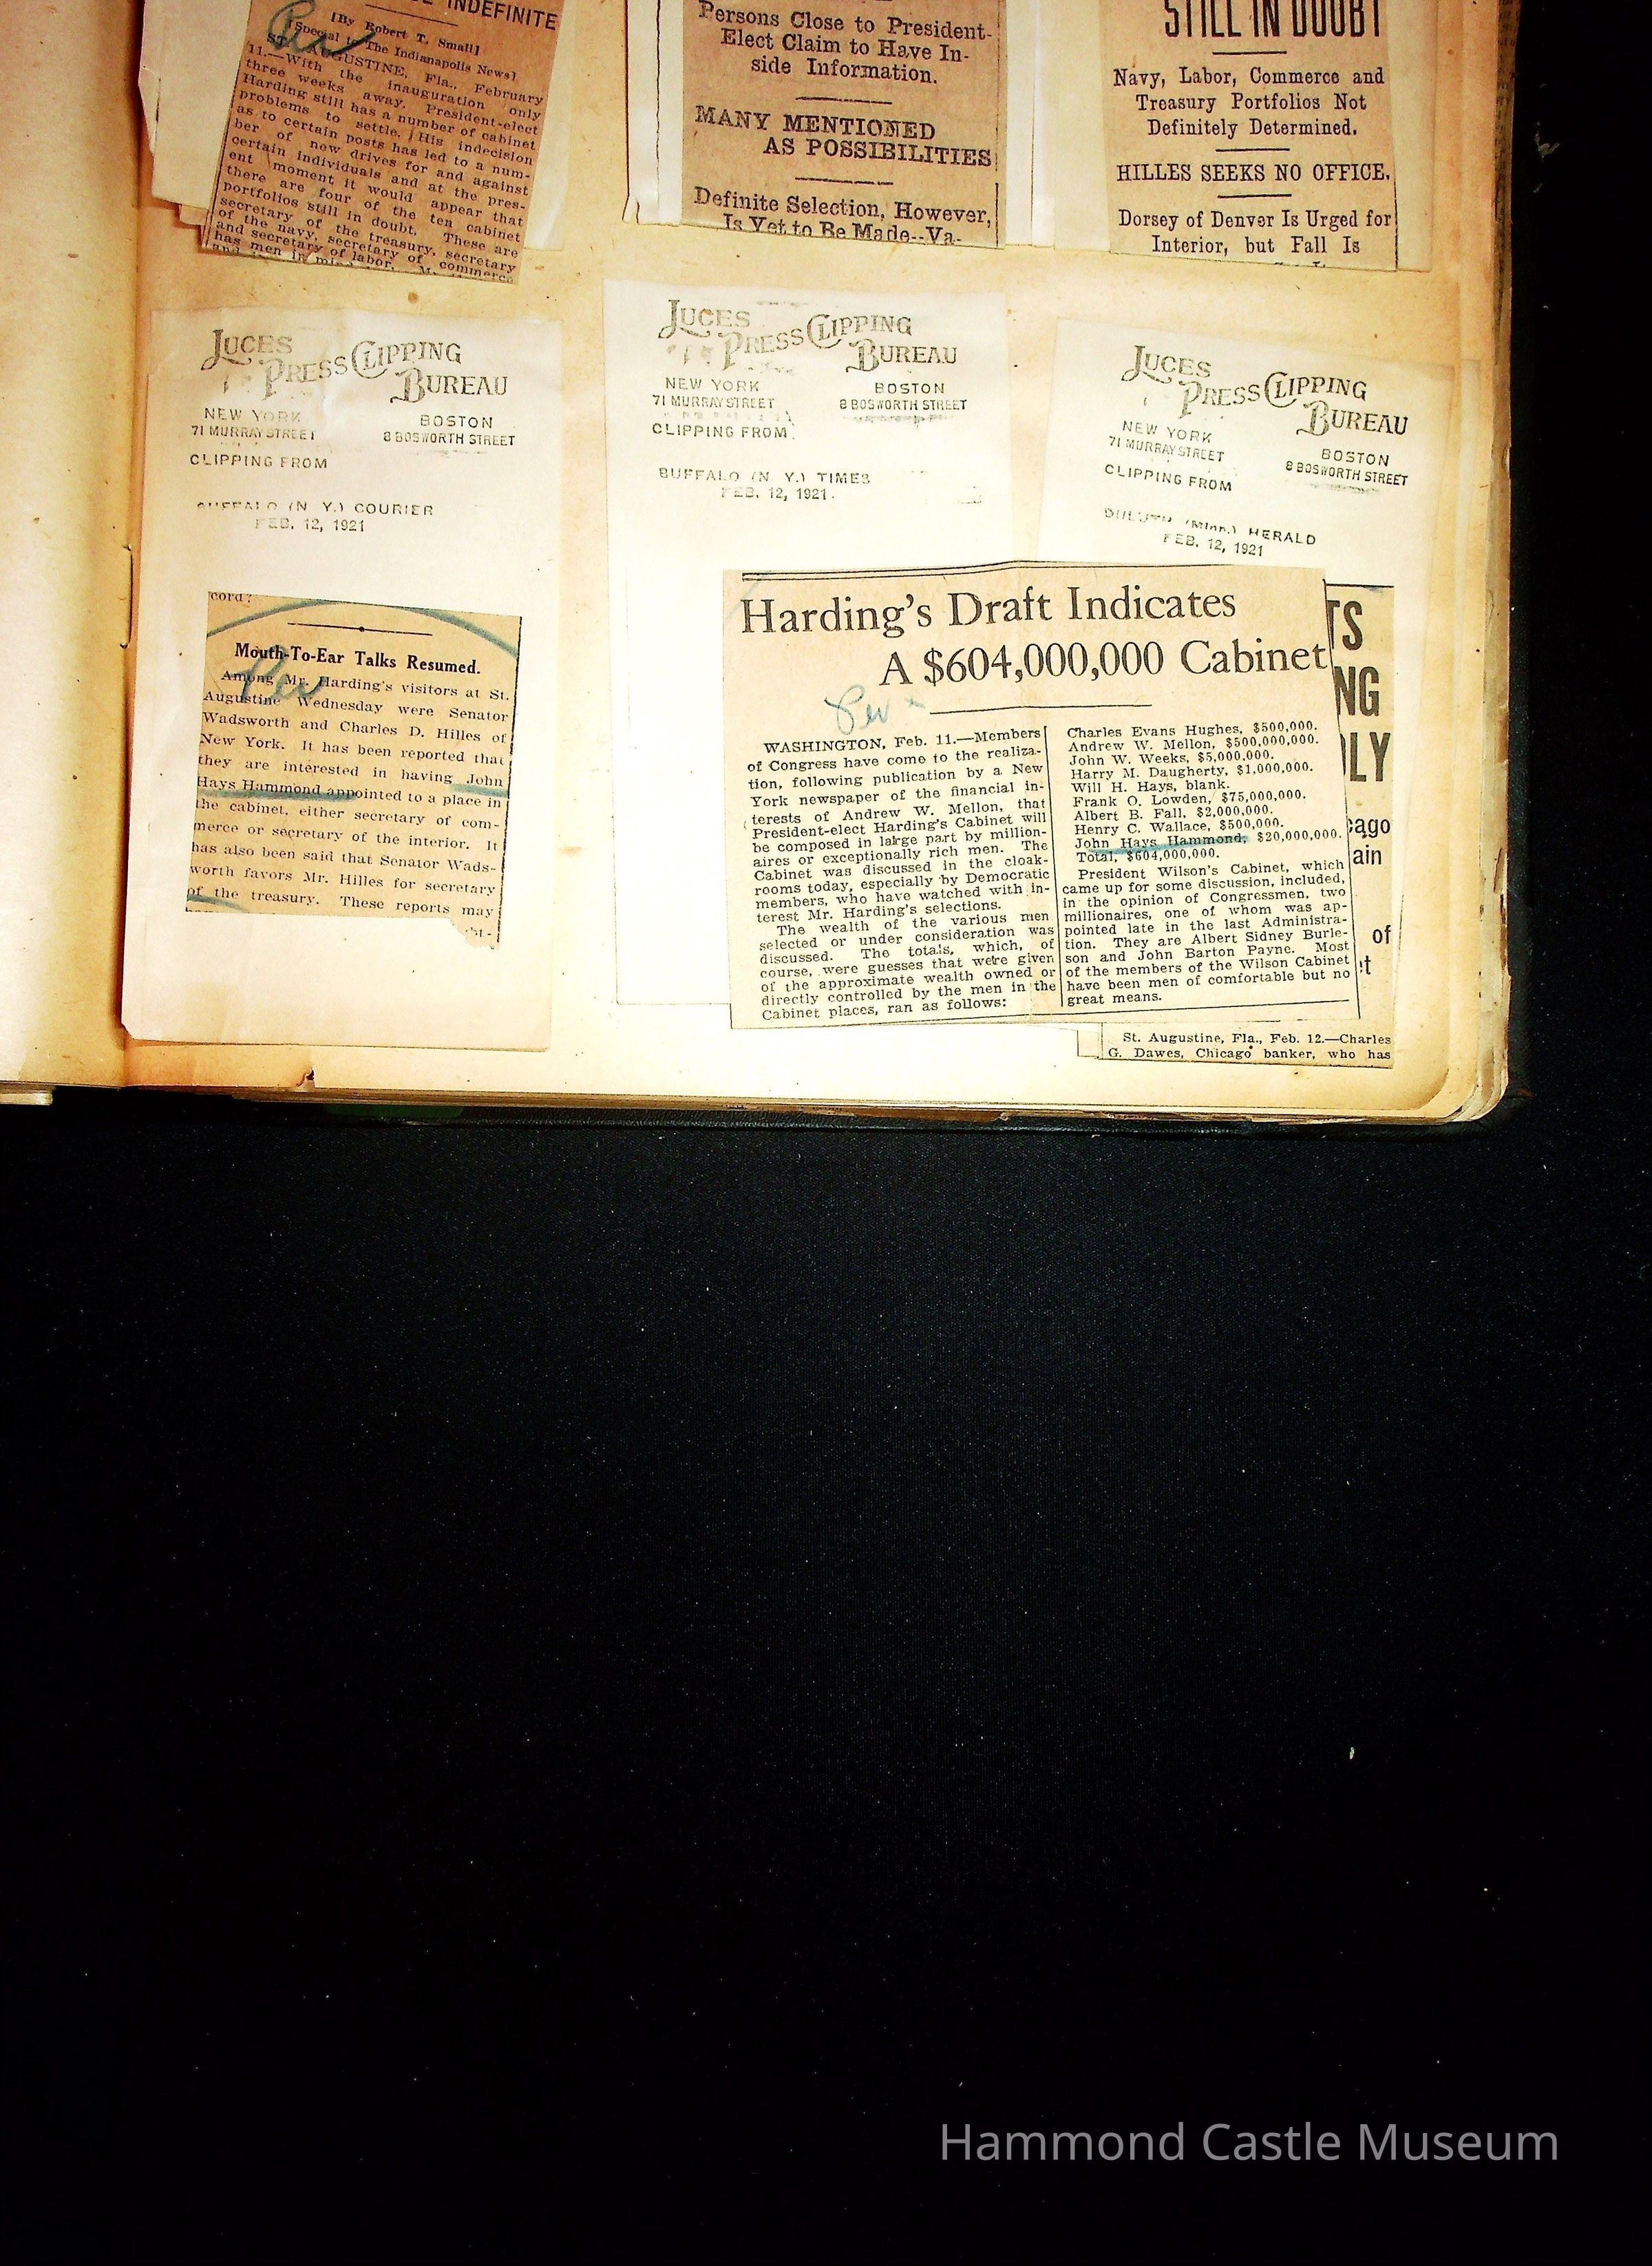 INDEFINITE
[By Robert T. Small]
[Special to The Indianapolis News]
ST. AUGUSTINE, Fla., February
11.—With the inauguration only
three weeks away, President-elect
Harding still has a number of cabinet
problems to settle. His indecision
as to certain posts has led to a num-
ber of new drives for and against
certain individuals and at the pres-
ent moment it would appear that
there are four of the ten cabinet
portfolios still in doubt. These are
secretary of the treasury, secretary
of the navy, secretary of commerce
and secretary of labor.
has men in
Persons Close to President-
Elect Claim to Have In-
side Information.
MANY MENTIONED
AS POSSIBILITIES
Definite Selection, However,
Is Yet to Be Made--Va-
STILL IN DOUBT
Navy, Labor, Commerce and
Treasury Portfolios Not
Definitely Determined.
HILLES SEEKS NO OFFICE.
Dorsey of Denver Is Urged for
Interior, but Fall Is
LUCES
PRESS CLIPPING
BUREAU
NEW YORK
71 MURRAY STREET
BOSTON
8 BOSWORTH STREET
CLIPPING FROM
BUFFALO (N. Y.) COURIER
FEB. 12, 1921
cord?
Mouth-To-Ear Talks Resumed.
Among Mr. Harding's visitors at St.
Augustine Wednesday were Senator
Wadsworth and Charles D. Hilles of
New York. It has been reported that
they are interested in having John
Hays Hammond appointed to a place in
the cabinet, either secretary of com-
merce or secretary of the interior. It
has also been said that Senator Wads-
worth favors Mr. Hilles for secretary
of the treasury. These reports may
LUCES
PRESS CLIPPING
BUREAU
NEW YORK
71 MURRAY STREET
BOSTON
8 BOSWORTH STREET
CLIPPING FROM
BUFFALO (N. Y.) TIMES
FEB. 12, 1921.
LUCES
PRESS CLIPPING
BUREAU
NEW YORK
71 MURRAY STREET
BOSTON
8 BOSWORTH STREET
CLIPPING FROM
DULUTH (Minn.) HERALD
FEB. 12, 1921
Harding's Draft Indicates
A $604,000,000 Cabinet
WASHINGTON, Feb. 11.—Members
of Congress have come to the realiza-
tion, following publication by a New
York newspaper of the financial in-
terests of Andrew W. Mellon, that
President-elect Harding's Cabinet will
be composed in large part by million-
aires or exceptionally rich men. The
Cabinet was discussed in the cloak-
rooms today, especially by Democratic
members, who have watched with in-
terest Mr. Harding's selections.
The wealth of the various men
selected or under consideration was
discussed. The totals, which, of
course, were guesses that were given
of the approximate wealth owned or
directly controlled by the men in the
Cabinet places, ran as follows:
Charles Evans Hughes, $500,000.
Andrew W. Mellon, $500,000,000.
John W. Weeks, $5,000,000.
Harry M. Daugherty, $1,000,000.
Will H. Hays, blank.
Frank O. Lowden, $75,000,000.
Albert B. Fall, $2,000,000.
Henry C. Wallace, $500,000.
John Hays Hammond, $20,000,000.
Total, $604,000,000.
President Wilson's Cabinet, which
came up for some discussion, included,
in the opinion of Congressmen, two
millionaires, one of whom was ap-
pointed late in the last Administra-
tion. They are Albert Sidney Burle-
son and John Barton Payne. Most
of the members of the Wilson Cabinet
have been men of comfortable but no
great means.
TS
NG
LY
cago
ain
of
St. Augustine, Fla., Feb. 12.—Charles
G. Dawes, Chicago banker, who has
Hammond Castle Museum